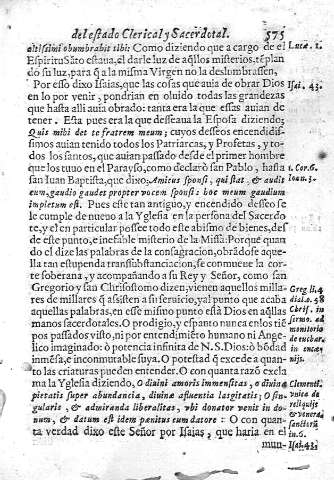 del estado Clerical y Sacerdotal. 575
altissimi obumbrabit tibi Como diziendo que a cargo de el
Espiritu Sãto estaua, el darle luz de aq̃llos misterios, tẽplan
do su luz, para q̃ a la misma Virgen no la deslumbrassen,
Por esso dixo Isaias, que las cosas que auia de obrar Dios
en lo por venir, pondrian en oluido todas las grandezas
que hasta alli auia obrado: tanta era la que essas auian de
tener. Esta pues era la que desseaua la Esposa diziendo;
Quis mihi det te fratrem meum; cuyos desseos encendidis-
simos auian tenido todos los Patriarcas, y Profetas, y to-
dos los santos, que auian passado desde el primer hombre
que los tuuo en el Parayso, como declarò san Pablo, hasta
san Iuan Baptista, que dixo, Amicus sponsi, qui stat, & audit
eum, gaudio gaudet propter vocem sponsi: hoc meum gaudium
impletum est. Pues este tan antiguo, y encendido desseo se
le cumple de nueuo a la Yglesia en la persona del Sacerdo
te, y el en particular possee todo este abismo de bienes, des
de este punto, e inefable misterio de la Missa: Porque quan
do el dize las palabras de la consagracion, obrãdose aque-
lla tan estupenda transsubstanciacion, se conmueue la cor-
te soberana, y acompañando a su Rey y Señor, como san
Gregorio y san Chrisostomo dizen, vienen aquellos milla-
res de millares q̃ assisten a su seruicio, y al punto que acaba
aquellas palabras, en esse mismo punto està Dios en aq̃llas
manos sacerdotales. O prodigio, y espanto nunca en los tiẽ
pos passados visto, ni por entendimiẽto humano ni Ange-
lico imaginado: ò potencia infinita de N. S. Dios: ò bõdad
inmẽsa, e inconmutable suya. O potestad q̃ excede a quan-
to las criaturas pueden entender. O con quanta razõ excla
ma la Yglesia diziendo, O diuini amoris immensitas, o diuinæ
pietatis super abundancia, diuinæ afluentia largitatis; O sin-
gularis, & admiranda liberalitas, vbi donator venit in do-
num, & datum est idem pænitus cum datore: O con quan-
ta verdad dixo este Señor por Isaias, que haria en el
mun-
Lucæ. 1.
Isai. 43.
1. Cor. 6.
Ioan. 3.
Greg. li. 4
dial. c. 58
Chris. in
sermo. ad
monitorio
Clementi.
vnica de
reliquijs
& venera.
sanctorũ
in. 6.
Isai. 43.